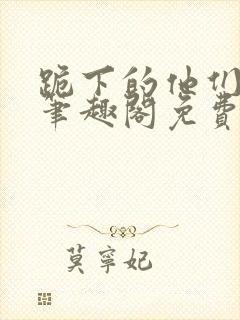 跪下的他们
笔趣阁免费
莫寧妃